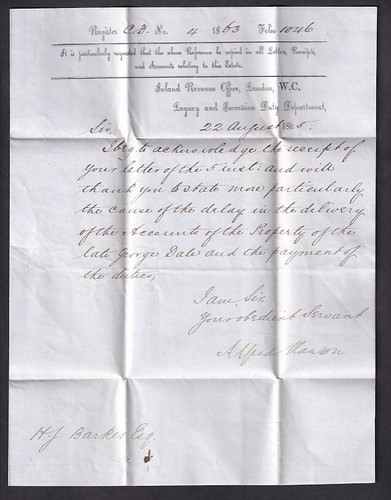 Register C.D. No. 4 1863 Folio 1046
It is particularly requested that the above Reference be copied in all Letters, Receipts,
and Accounts relating to this Estate.
Inland Revenue Office, London, W.C.
Legacy and Succession Duty Department,
22 August 1865.
Sir,
I beg to acknowledge the receipt of
your letter of the 5 inst: and will
thank you to state more particularly
the cause of the delay in the delivery
of the Accounts of the Property of the
late George Date and the payment of
the duties,
I am, Sir,
Your obedient Servant
Alfred Hanson
H.J. Barker Esq.